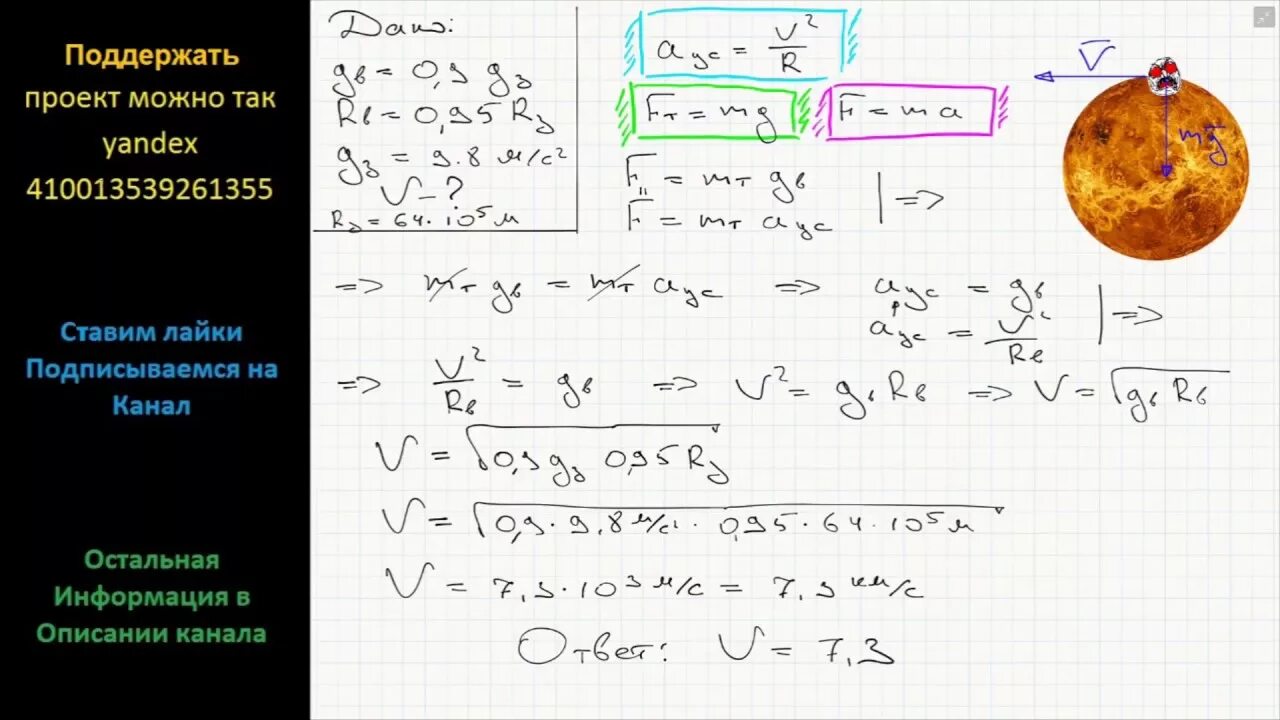 Поддержать
проект можно так
yandex
410013539261355
Ставим лайки
Подписываемся на
Канал
Остальная
Информация в
Описании канала
Дано:
gв = 0,9 gз
Rв = 0,95 Rз
gз = 9.8 м/с²
V - ?
Rз = 64·10⁵ м
aус = V²/R
Fт = mg
F = ma
V
mg
Fп = mт gв
F = mт aус
| =>
=> mт gв = mт aус => aус = gв
aус = V²/Rв
| =>
=> V²/Rв = gв => V² = gв Rв => V = √gв Rв
V = √0,9 gз 0,95 Rз
V = √0,9 · 9.8 м/с² · 0,95 · 64 · 10⁵ м
V = 7,3·10³ м/с = 7,3 км/с
Ответ: V = 7,3